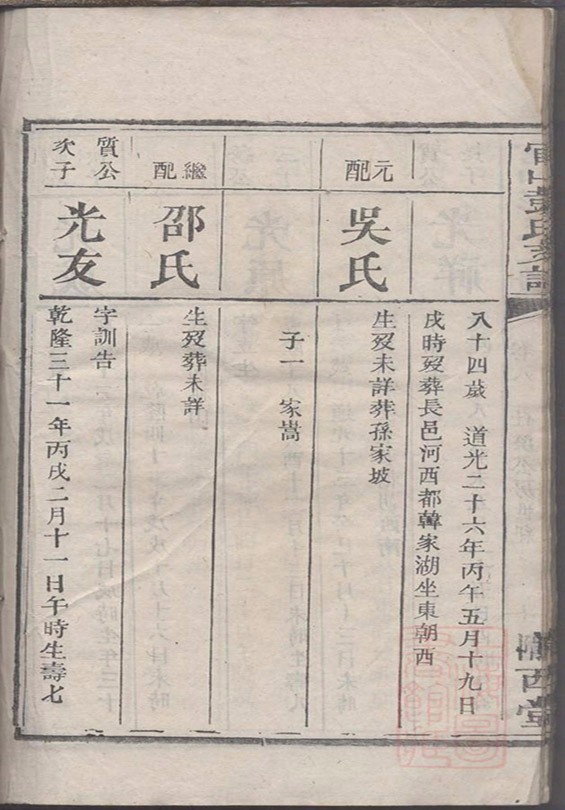 八十四歲　道光二十六年丙午五月十九日
戌時歿葬長邑河西都韓家湖坐東朝西
元配
吳氏
生歿未詳葬孫家坡
子一　家嵩
繼配
邵氏
生歿葬未詳
質公
次子
光友
字訓告
乾隆三十一年丙戌二月十一日午時生壽七